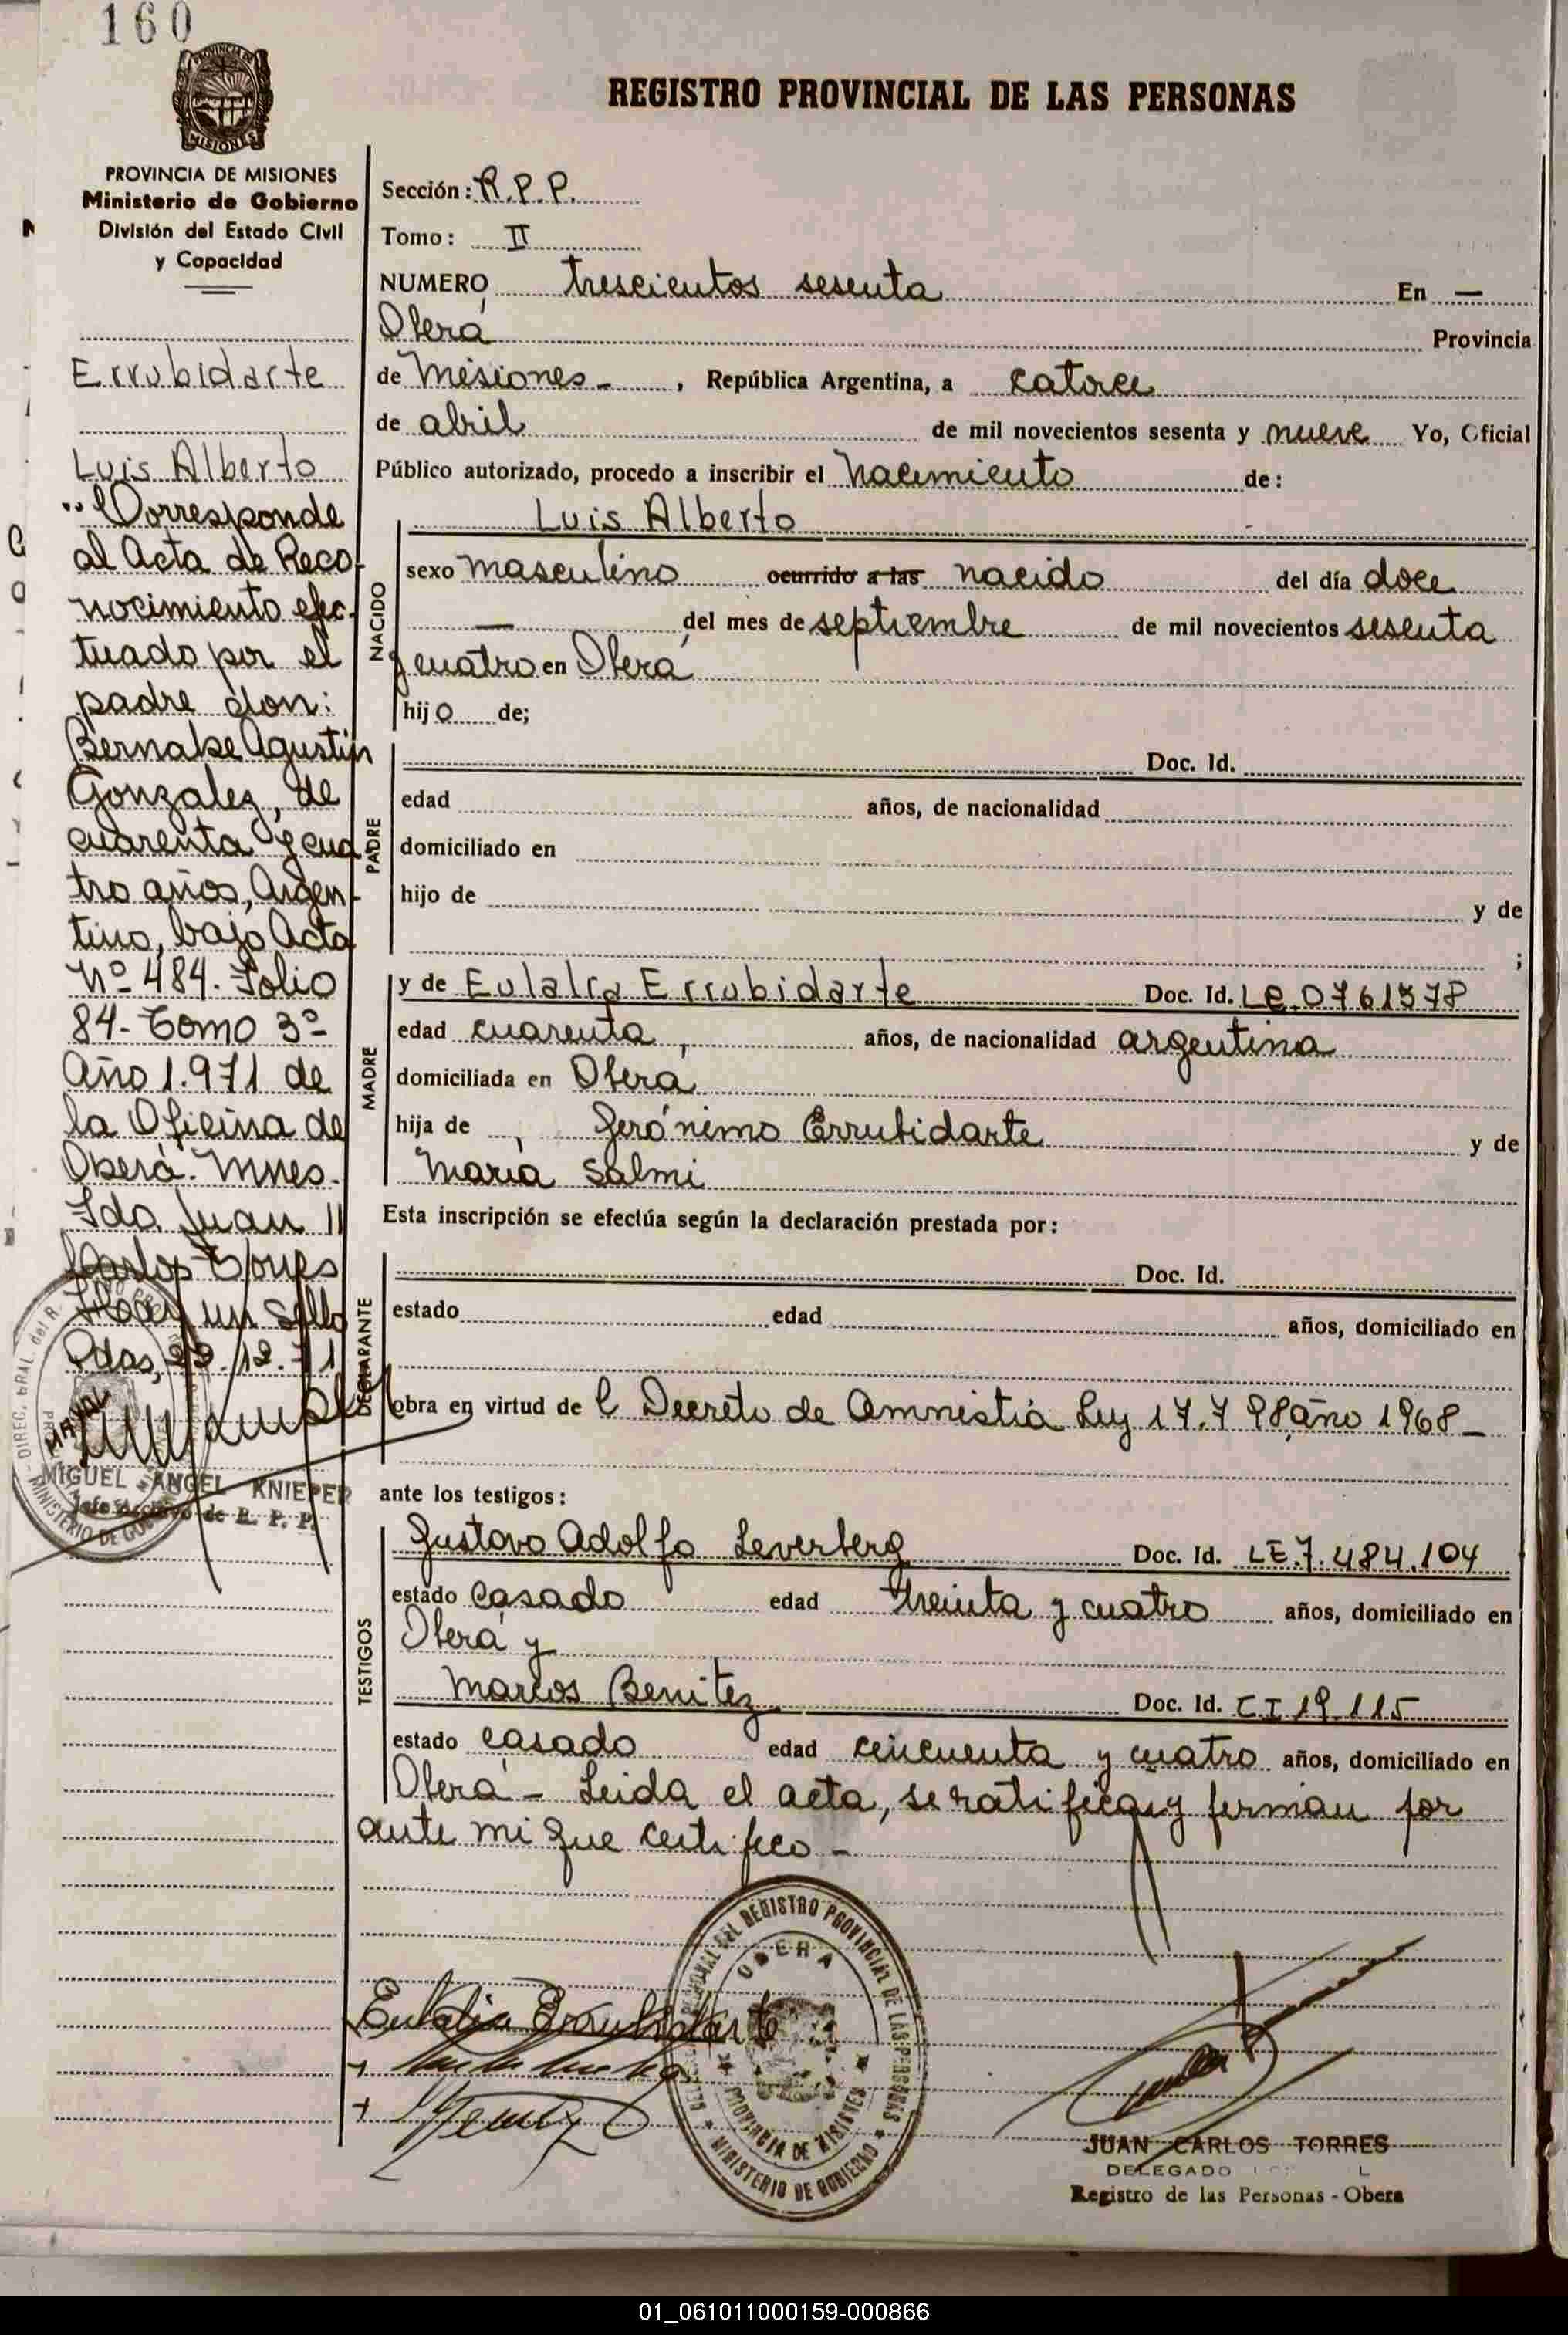 160
PROVINCIA DE MISIONES
REGISTRO PROVINCIAL DE LAS PERSONAS
PROVINCIA DE MISIONES
Ministerio de Gobierno
División del Estado Civil
y Capacidad
Errubidarte
Luis Alberto
"Corresponde
al Acta de Reco-
nocimiento efec-
tuado por el
padre don:
Bernabe Agustín
Gonzalez, de
cuarenta y cua
tro años, Argen-
tino, bajo Acta
Nº 484. Folio
84- Tomo 3º
Año 1.971 de
la Oficina de
Oberá. Mnes.
Fdo. Juan
Carlos Torres
Hay un Sello
Pdas, 22.12.71
MIGUEL ANGEL KNIEPER
Jefe Archivo de R. P. P.
Sección: R.P.P.
Tomo: II
NUMERO trescientos sesenta En —
Oberá Provincia
de Misiones - , República Argentina, a catorce
de abril de mil novecientos sesenta y nueve Yo, Oficial
Público autorizado, procedo a inscribir el nacimiento de:
Luis Alberto
NACIDO
sexo masculino ocurrido a las nacido del día doce
— del mes de septiembre de mil novecientos sesenta
y cuatro en Oberá
hijo de;
PADRE
Doc. Id.
edad años, de nacionalidad
domiciliado en
hijo de y de
;
MADRE
y de Eulalia Errubidarte Doc. Id. LC.0761578
edad cuarenta, años, de nacionalidad argentina
domiciliada en Oberá
hija de , Gerónimo Errubidarte y de
María Salmi
Esta inscripción se efectúa según la declaración prestada por:
DECLARANTE
Doc. Id.
estado edad años, domiciliado en
obra en virtud de l Decreto de Amnistia Ley 17.798, año 1968-
ante los testigos:
TESTIGOS
Gustavo Adolfo Leverberg Doc. Id. LE.7.484.104
estado casado edad treinta y cuatro años, domiciliado en
Oberá y
Marcos Benitez Doc. Id. CI 19.115
estado casado edad cincuenta y cuatro años, domiciliado en
Oberá - Leida el acta, se ratifican y firman por
ante mi que certifico -
Eulalia Errubidarte
REGISTRO PROVINCIAL DE LAS PERSONAS
OBERA
PROVINCIA DE MISIONES
MINISTERIO DE GOBIERNO
JUAN CARLOS TORRES
DELEGADO
Registro de las Personas - Obera
01_061011000159-000866